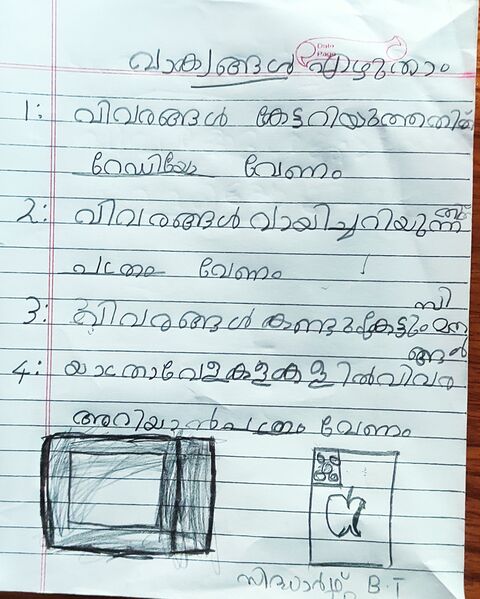 Date
Page
വാക്യങ്ങൾ എഴുതാം
1: വിവരങ്ങൾ കേട്ടറിയുന്നതിന്
റേഡിയോ വേണം
2: വിവരങ്ങൾ വായിച്ചറിയുന്നത്
പത്രം വേണം
3: വിവരങ്ങൾ കണ്ടും കേട്ടും
4: യാത്രാവേളകളിൽ വിവര
അറിയാൻ പത്രം വേണം
സിദ്ധാർഥ് B.T